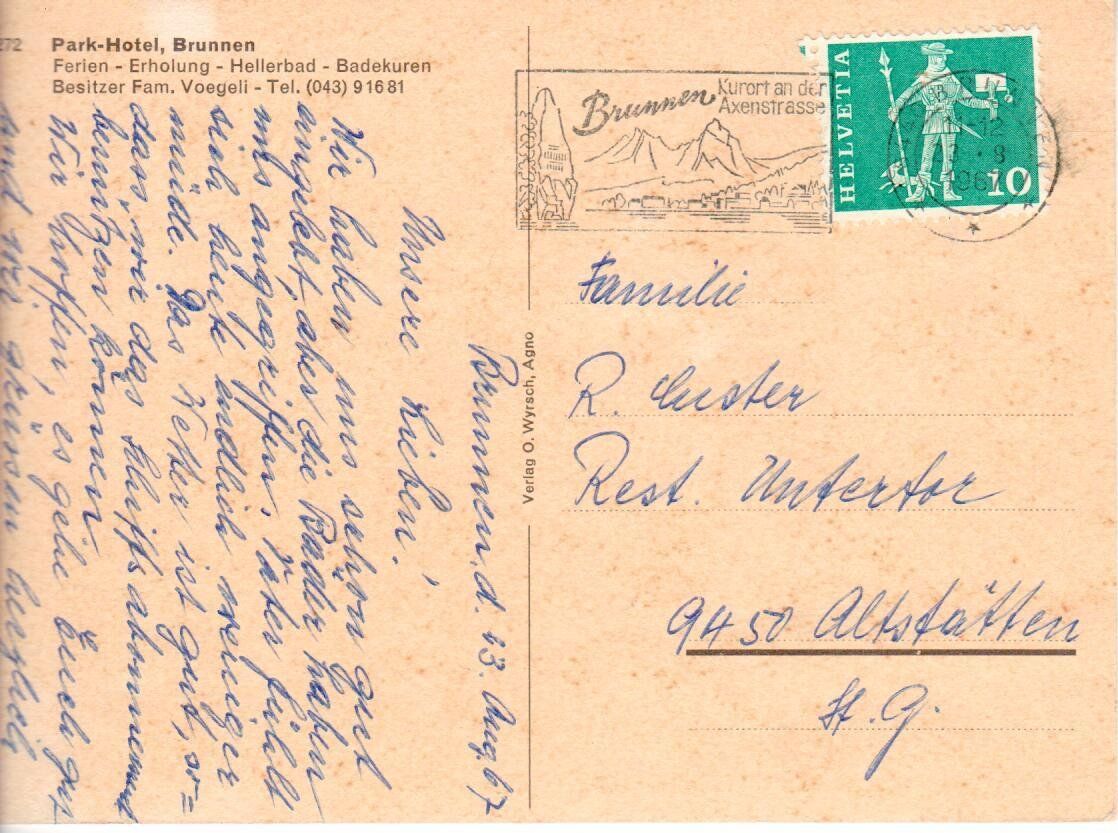 272 Park-Hotel, Brunnen
Ferien - Erholung - Hellerbad - Badekuren
Besitzer Fam. Voegeli - Tel. (043) 9 16 81
Brunnen, d. 23. Aug. 67
Unsere Lieben!
Wir haben uns schon gut
eingelebt, aber die Bäder haben
uns angegriffen. Vater fühlt
sich heute endlich weniger
müde. Das Wetter ist gut, so=
dass wir das Schiffsabonnement
benützen können.
Wir hoffen, es gehe Euch gut
und wir grüssen herzlich
Verlag O. Wyrsch, Agno
Brunnen
Kurort an der
Axenstrasse
HELVETIA
10
Familie
R. Custer
Rest. Untertor
9450 Altstätten
St. G.